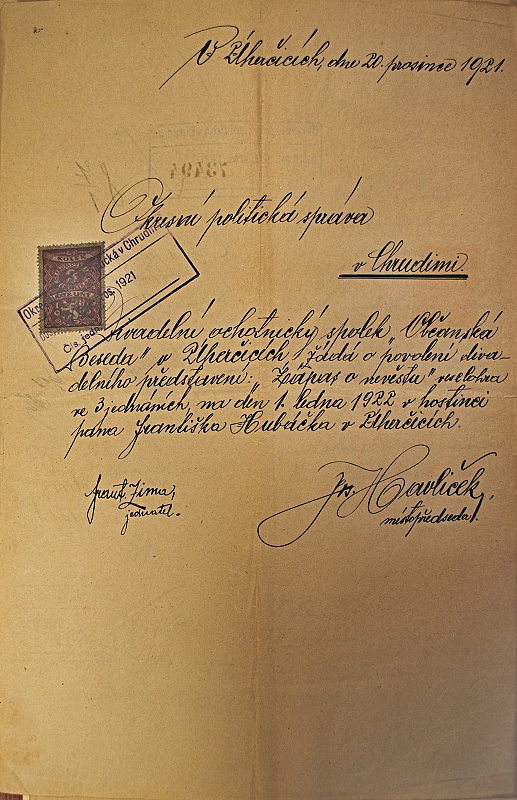 V Lherčicích, dne 20. prosince 1921.
73494
Okresní politická správa
v Chrudimi.
KOLEK
Okr politická v Chrudimi
1921
Čís. jedn.
Divadelní ochotnický spolek „Občanská
Beseda" v Lherčicích žádá o povolení diva-
delního představení: „Zápas o nevěstu" veselohra
ve 3 jednáních, na den 1. ledna 1922 v hostinci
pana Františka Hubáčka v Lherčicích.
Frant. Zima,
jednatel.
Jos. Havlíček,
místopředseda.